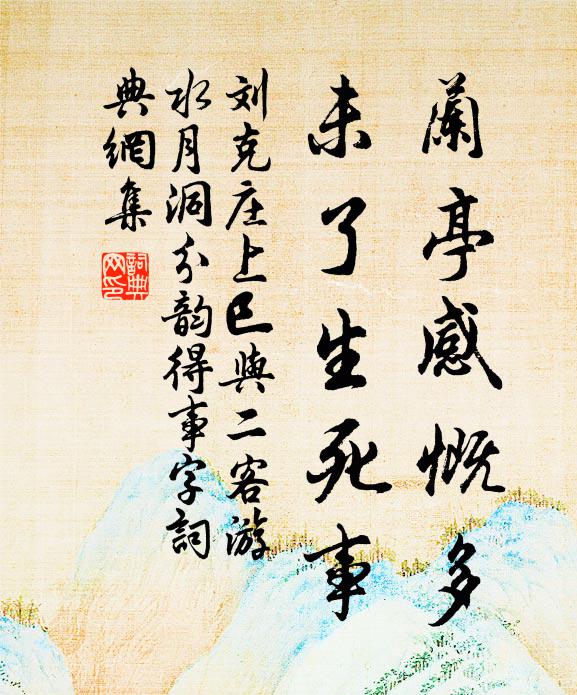 蘭亭感慨多
未了生死事
刘克庄上巳與二客游
水月洞分韵得事字詞
典網集
詞典網印